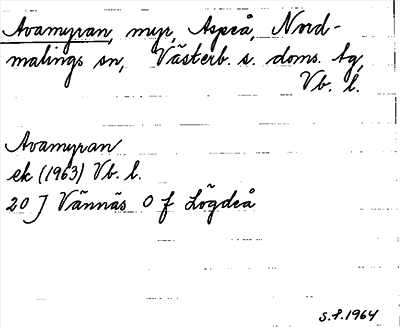 Avamyran, myr, Aspeå, Nord-
malings sn, Västerb. s. doms. tg,
Vb. l.
Avamyran
ek (1963) Vb. l.
20 J Vännäs 0 f Lögdeå
S.F. 1964